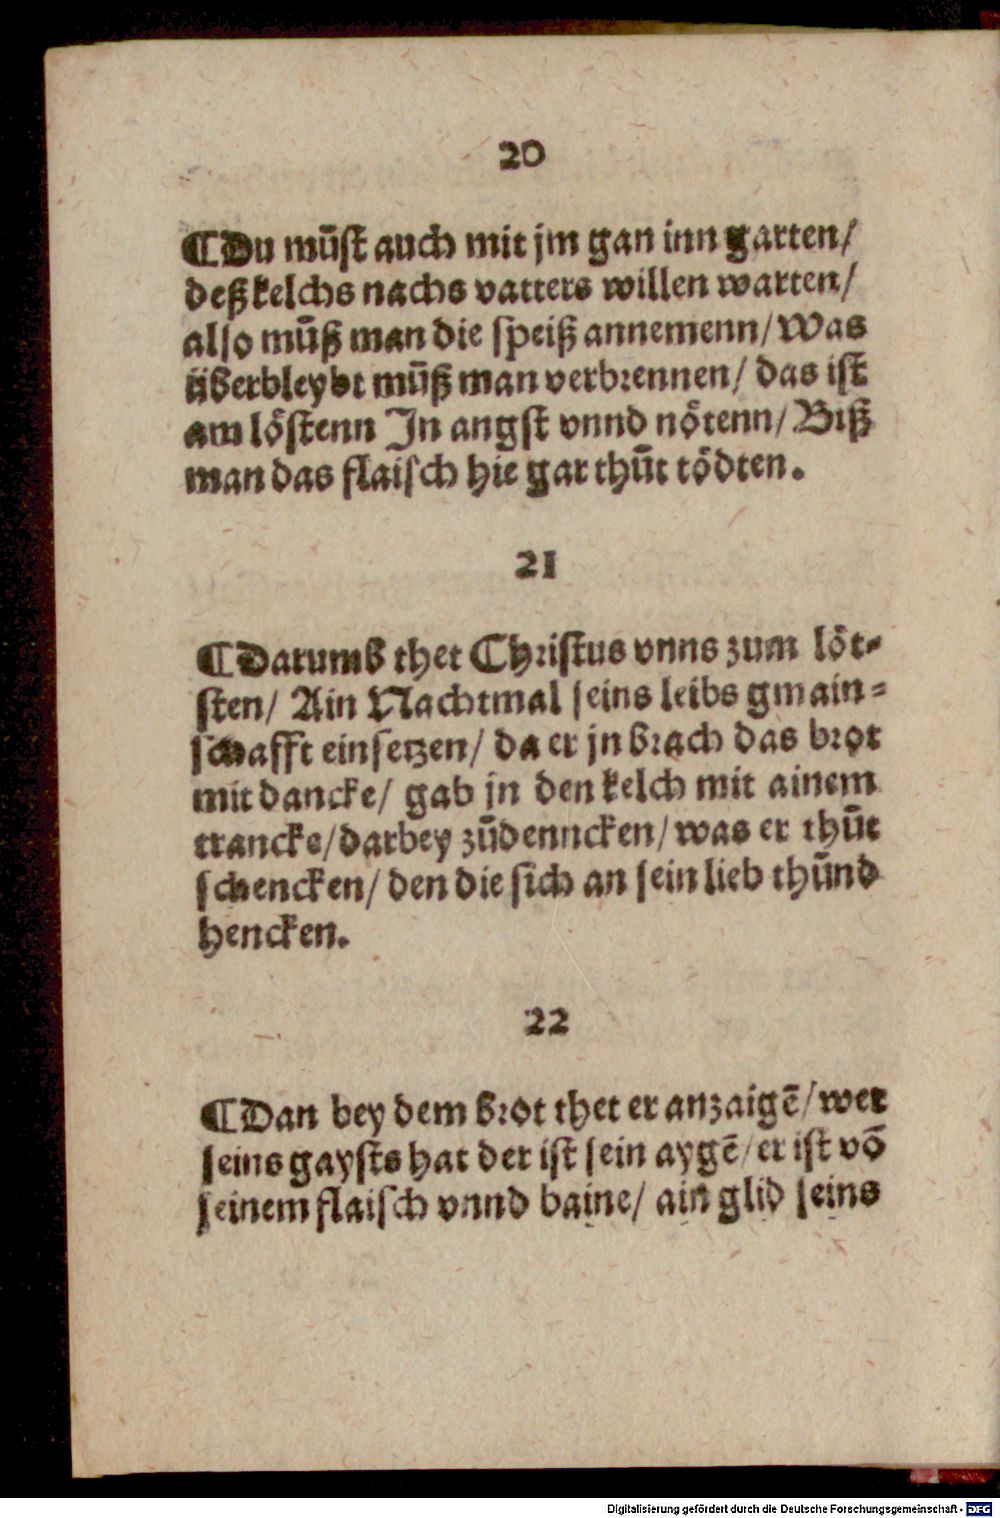 20
¶Du můst auch mit jm gan inn garten/
deß kelchs nachs vatters willen warten/
also můß man die speiß annemenn/ Was
überbleybt můß man verbrennen/ das ist
am löstenn In angst vnnd nötenn/ Biß
man das flaisch hie gar thůt tödten.
21
¶Darumb thet Christus vnns zum löt⸗
sten/ Ain Nachtmal seins leibs gmain⸗
schafft einsetzen/ da er jn brach das brot
mit dancke/ gab jn den kelch mit ainem
trancke/ darbey zůdenncken/ was er thůt
schencken/ den die sich an sein lieb thůnd
hencken.
22
¶Dan bey dem brot thet er anzaigē/ wer
seins gaysts hat der ist sein aygē/ er ist vō
seinem flaisch vnnd baine/ ain glid seins
Digitalisierung gefördert durch die Deutsche Forschungsgemeinschaft - DFG